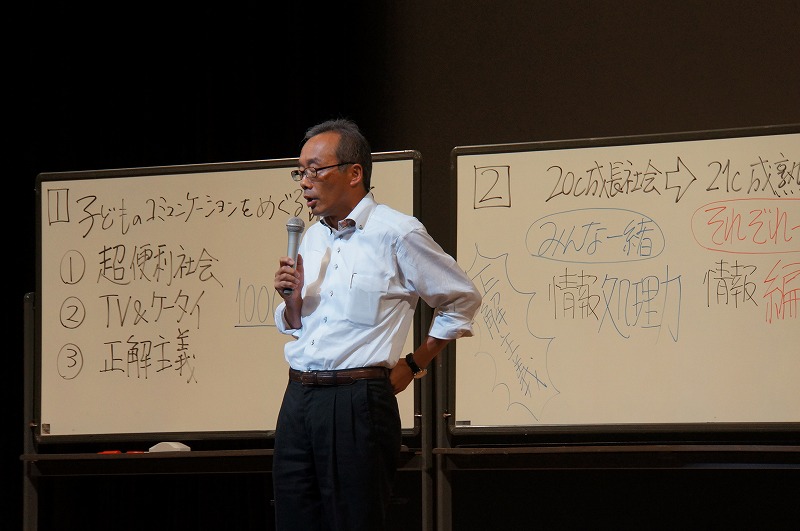 1 子どものコミュニケーションをめぐる
① 超便利社会
② TV&ケータイ
③ 正解主義
100
2 20C成長社会⇨21C成熟
みんな一緒
それぞれ一
情報処理力
情報編
正解主義